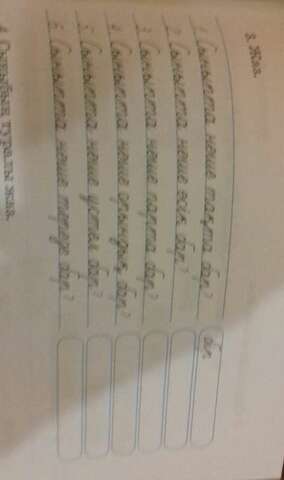 3. Жаз.
1. Сыныпта неше тақта бар?
бір
2. Сыныпта неше есік бар?
3. Сыныпта неше парта бар?
4. Сыныпта неше орындық бар?
5. Сыныпта неше үстел бар?
6. Сыныпта неше терезе бар?
4. Сыныбың туралы жаз.